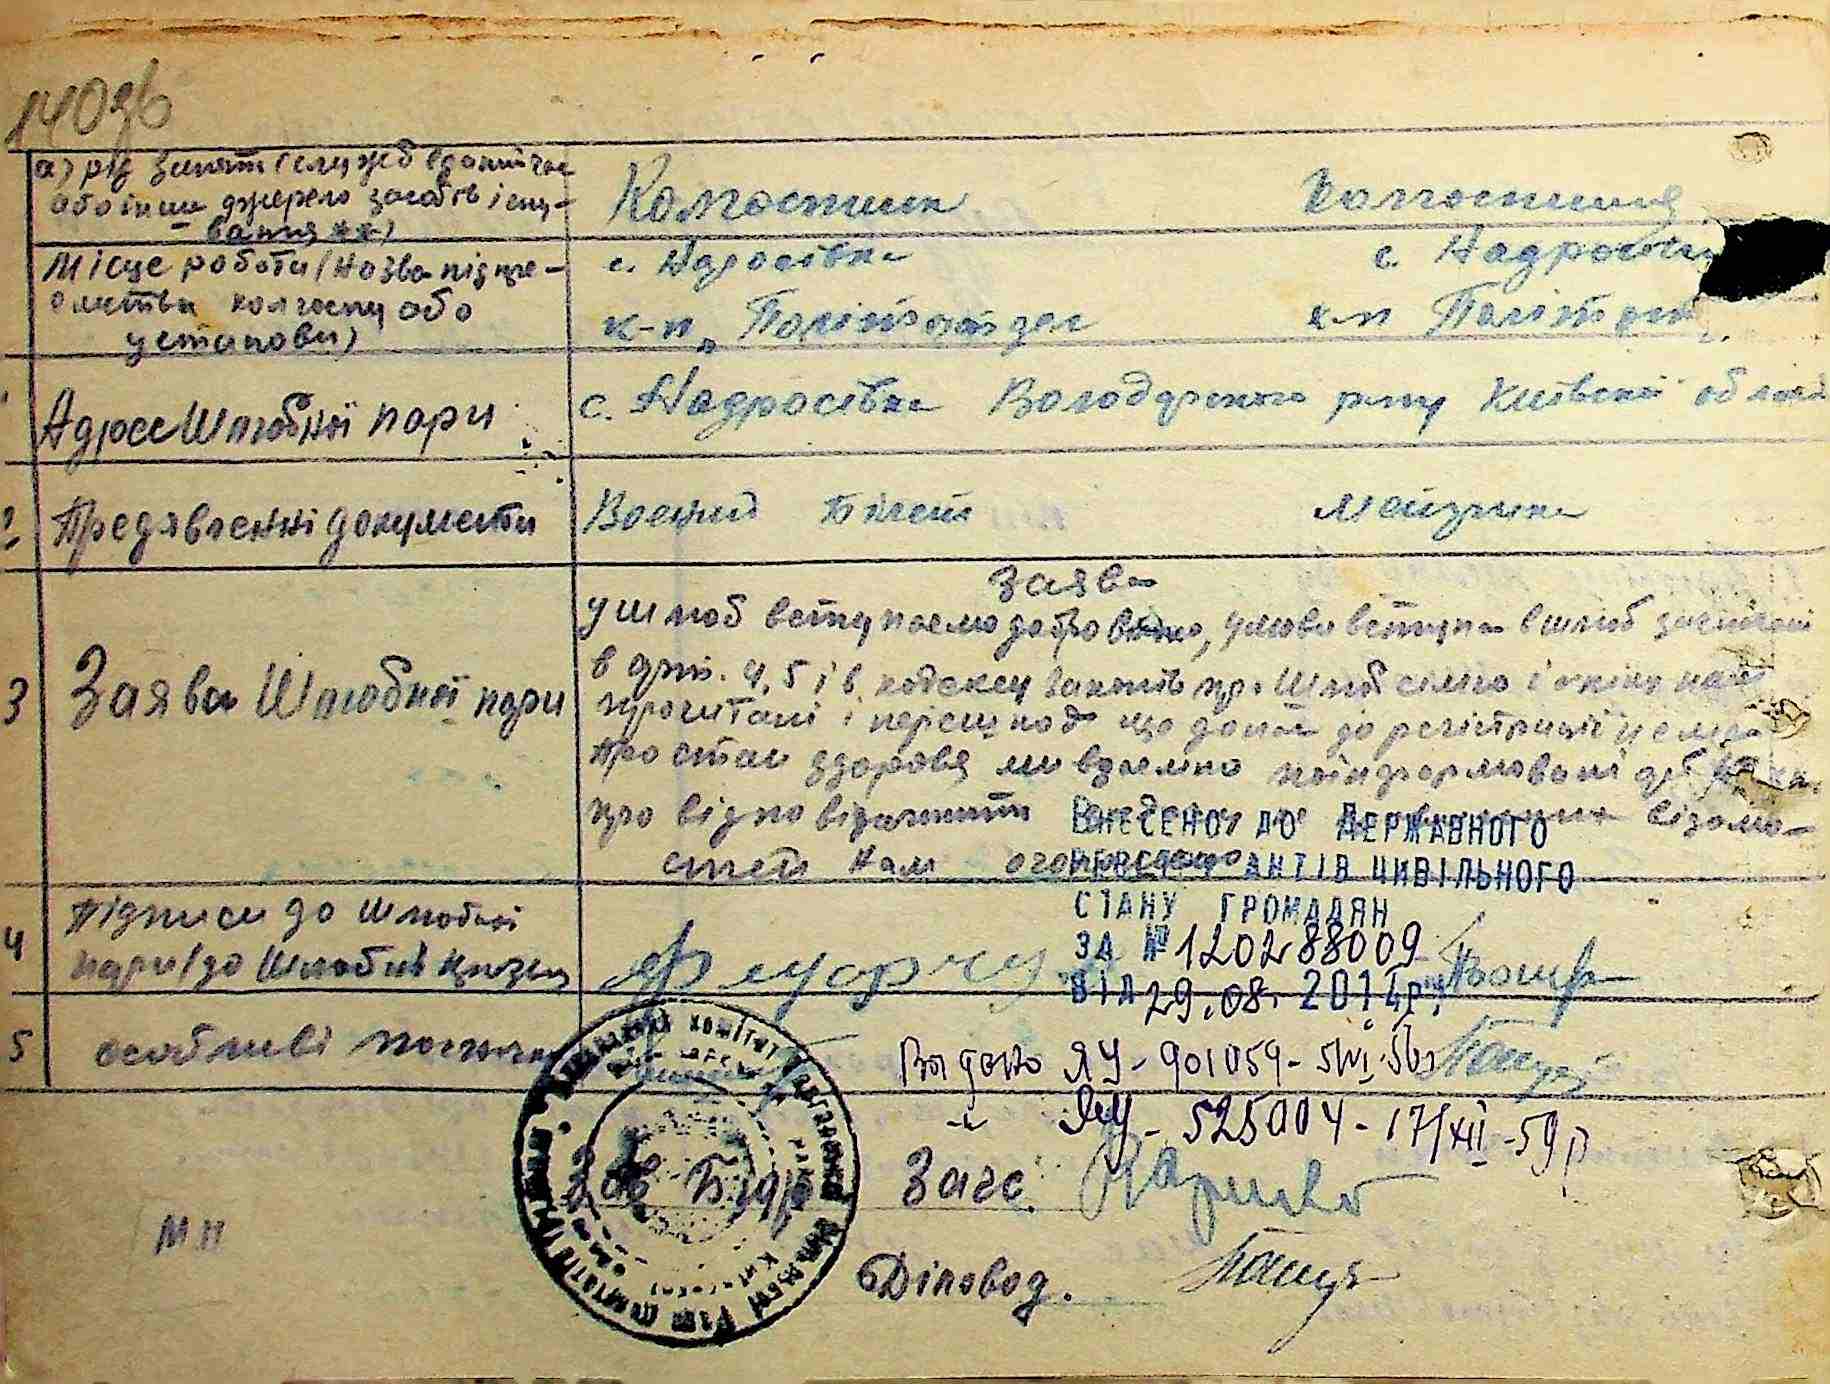 140зв
а) рід занять (служб в даний час
або інше джерело засобів існу-
вання **)
Колгоспник
Колгоспниця
Місце роботи (Назва підпре-
ємства колгоспу або
установи)
с. Надросівка
с. Надросівка
к-п „Політвідділ
к-п Політвід
Адрес Шлюбної пари
с. Надросівка Володарського р-ну Київської області
2 Предявленні документи
Воєнний білет
Метрика
3 Заява Шлюбної пари
Заява
У шлюб вступаємо добровільно, умови вступа в шлюб зазначені
в арт. 4, 5 і 6 кодексу Законів пр. Шлюб сімю і опіку нам
прочитані і перешкод що до регістрації немає
Про стан здоровя ми взаємно поінформовані
про відповідальність відомо-
стей нам оголошено
4 Підписи до Шлюбної
пари
5 особливі
ВНЕСЕНО ДО ДЕРЖАВНОГО
РЕЄСТРУ АКТІВ ЦИВІЛЬНОГО
СТАНУ ГРОМАДЯН
ЗА № 120288009
ВІД 29.08. 2014р.
Видано ЯУ - 901059 - 5/VI.56г
-"- ЯУ - 525004 - 17/XII - 59 р
Зав Бюро Загс.
МП
Діловод.